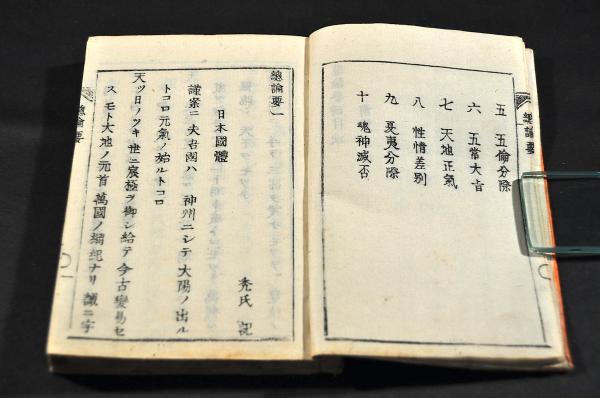 總論要
五 五倫分際
六 五常大旨
七 天地正氣
八 性情差別
九 夏夷分際
十 魂神滅否
總論要一
日本國體
禿氏 記
謹案ニ夫吾國ハ 神州ニシテ大陽ノ出ル
トコロ元氣ノ始ルトコロ
天ツ日ノツキ世ニ宸極ヲ御シ給テ今古變易セ
ス モト大地ノ元首萬國ノ綱紀ナリ 誠ニ宇
總論要